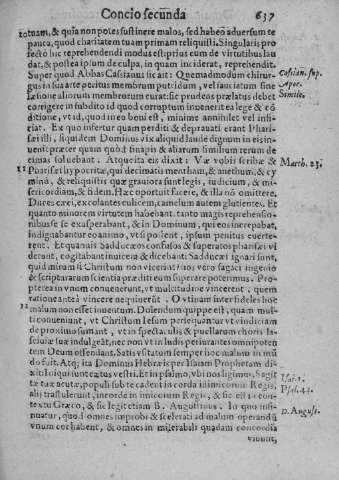 Concio secunda 637
rotuam, & quia non potes sustinere malos, sed habeo aduersum te
pauca, quod charitatem tuam primam reliquisti. Singularis pro
fecto hic reprehendendi modus est: prius eum de virtutibus lau
dat, & postea ipsum de culpa, in quam inciderat, reprehendit.
Super quod Abbas Cassianus sic ait: Quemadmodum chirur-
gus in sua arte peritus membrum putridum, vel sauciatum sine
læsione aliorum membrorum curat: sic prudens prælatus debet
corrigere in subdito id quod corruptum inuenerit ea lege & cō
ditione, vt id, quod in eo boni est, minime annihilet vel infi-
ciat. Ex quo infertur quam perditi & deprauati erant Phari-
sæi illi, siquidem Dominus vix aliquid laude dignum in eis in-
uenit præter quam quòd sinapis & aliarum similium rerum de
cimas soluebant. Atque ita eis dixit: Væ vobis scribæ &
Pharisæi hypocritæ, qui decimatis mentham, & anethum, & cy
minū, & reliquistis quæ grauiora sunt legis, iudicium, & mise-
ricordiam, & fidem. Hæc oportuit facere, & illa nō omittere.
Duces cæci, excolantes culicem, camelum autem glutientes. Et
quanto minorem virtutem habebant, tanto magis reprehensio-
nibus se exasperabant, & in Dominum, qui eos increpabat,
indignabantur eo animo, vt si possent, ipsum penitus euerte-
rent. Et quanuis Sadducæos confusos & superatos pharisæi vi
derent, cogitabant inuicem & dicebant: Sadducæi ignari sunt,
quid mirum si Christum non vicerint? nos vero sagaci ingenio
& scripturarum scientia præditi eum superare poterimus. Pro-
pterea in vnum conuenerunt, vt multitudine vincerent, quem
ratione antea vincere nequiuerūt. O vtinam inter fideles hoc
malum non esset inuentum. Dolendum quippe est, quam mul-
ti conueniunt, vt Christum Iesum persequantur, vt vindictam
de proximo sumant, vt in spectaculis & puellarum choris la-
sciuiæ suæ indulgeāt, nec non vt in ludis periurantes omnipoten
tem Deum offendant. Satis vsitatum semper hoc malum in mū
do fuit. Atque ita Dominus Hebræis per Isaiam Prophetam di-
xit: Iniqui sunt cœtus vestri. Et in psalmo, vbi nos legimus, Sagit
tæ tuæ acutæ, populi sub te cadent in corda inimicorum Regis,
alij transtulerunt, in corde inimicorum Regis, & sic est in con-
textu Græco, & sic legit etiam B. Augustinus. In quo insi-
nuatur, quòd omnes improbi & scelerati ad malum operandū
vnum cor habent, & omnes in miserabili quadam concordia
viuunt,
Cassian. sup.
Apoc.
Simile.
Matth. 23.
Isai. 1.
Psal. 44.
D. August.